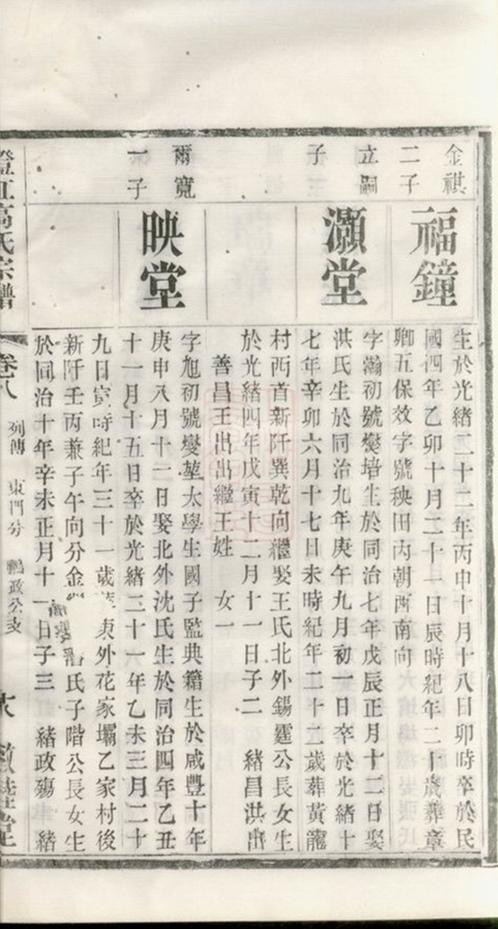 金祺
二子
福鐘
生於光緒二十二年丙申十月十八日卯時卒於民
國四年乙卯十月二十一日辰時紀年二十歲葬章
卿五保效字號秧田內朝西南向
立嗣
子
灝堂
字瀚初號爕培生於同治七年戊辰正月十二日娶
洪氏生於同治九年庚午九月初一日卒於光緒十
七年辛卯六月十七日未時紀年二十二歲葬黃龍
村西首新阡巽乾向繼娶王氏北外錫霆公長女生
於光緒四年戊寅十二月十一日子二 緒昌洪出
善昌王出出繼王姓 女一
爾寬
一子
映堂
字旭初號爕堃太學生國子監典籍生於咸豐十年
庚申八月十一日娶北外沈氏生於同治四年乙丑
十一月十五日卒於光緒二十一年乙未三月二十
九日寅時紀年三十一歲 東外花家壩乙家村後
新阡壬丙兼子午向分金 氏子階公長女生
於同治十年辛未正月十一日子三 緒政殤 緒
澄江高氏宗譜
卷八
列傳 東門分 鵬政公支